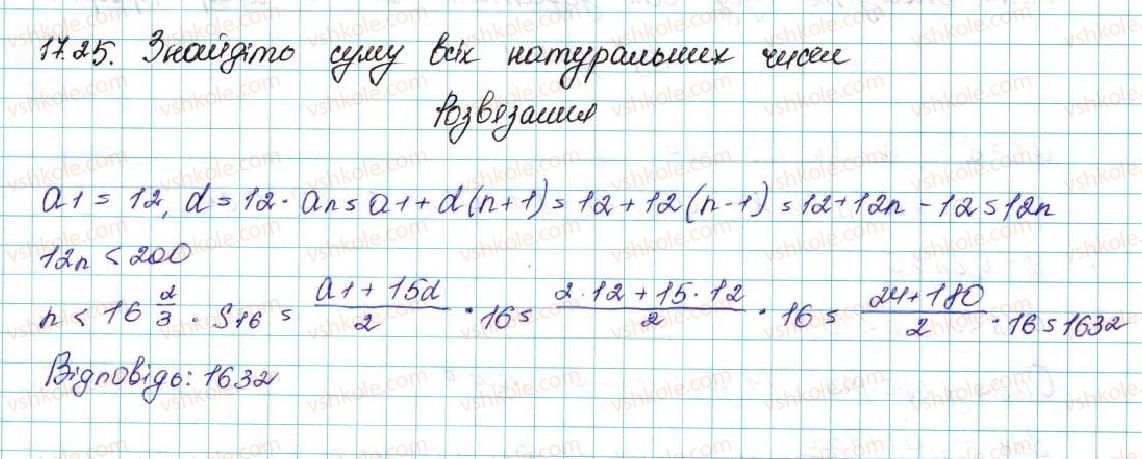 17.25. Знайдіто суму всіх натуральних чисел
Розвязання
a1 = 12, d = 12. an = a1 + d(n+1) = 12 + 12(n-1) = 12 + 12n - 12 = 12n
12n < 200
n < 16 2/3. S16 = (a1 + 15d)/2 · 16 = (2·12 + 15·12)/2 · 16 = (24 + 180)/2 · 16 = 1632
Відповідь: 1632